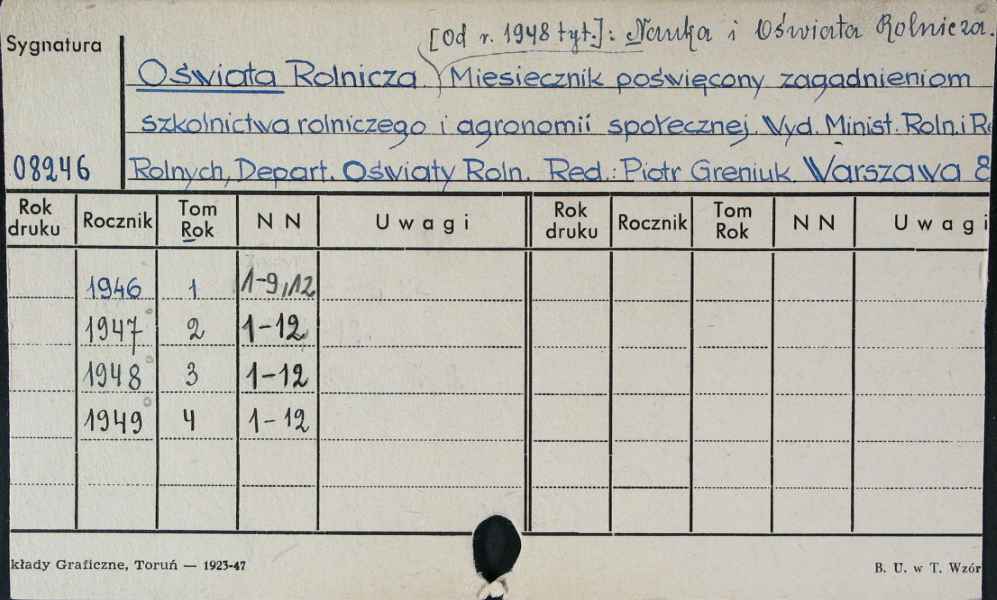 [Od r. 1948 tyt.]: Nauka i Oświata Rolnicza.
Sygnatura
Oświata Rolnicza. Miesiecznik poświęcony zagadnieniom
szkolnictwa rolniczego i agronomii społecznej. Wyd. Minist. Roln. i R
08246 Rolnych, Depart. Oświaty Roln. Red.: Piotr Greniuk. Warszawa 8
Rok druku Rocznik Tom Rok N N Uwagi Rok druku Rocznik Tom Rok N N Uwagi
1946 1 1-9,12
1947 2 1-12
1948 3 1-12
1949 4 1-12
kłady Graficzne, Toruń — 1923-47 B. U. w T. Wzór